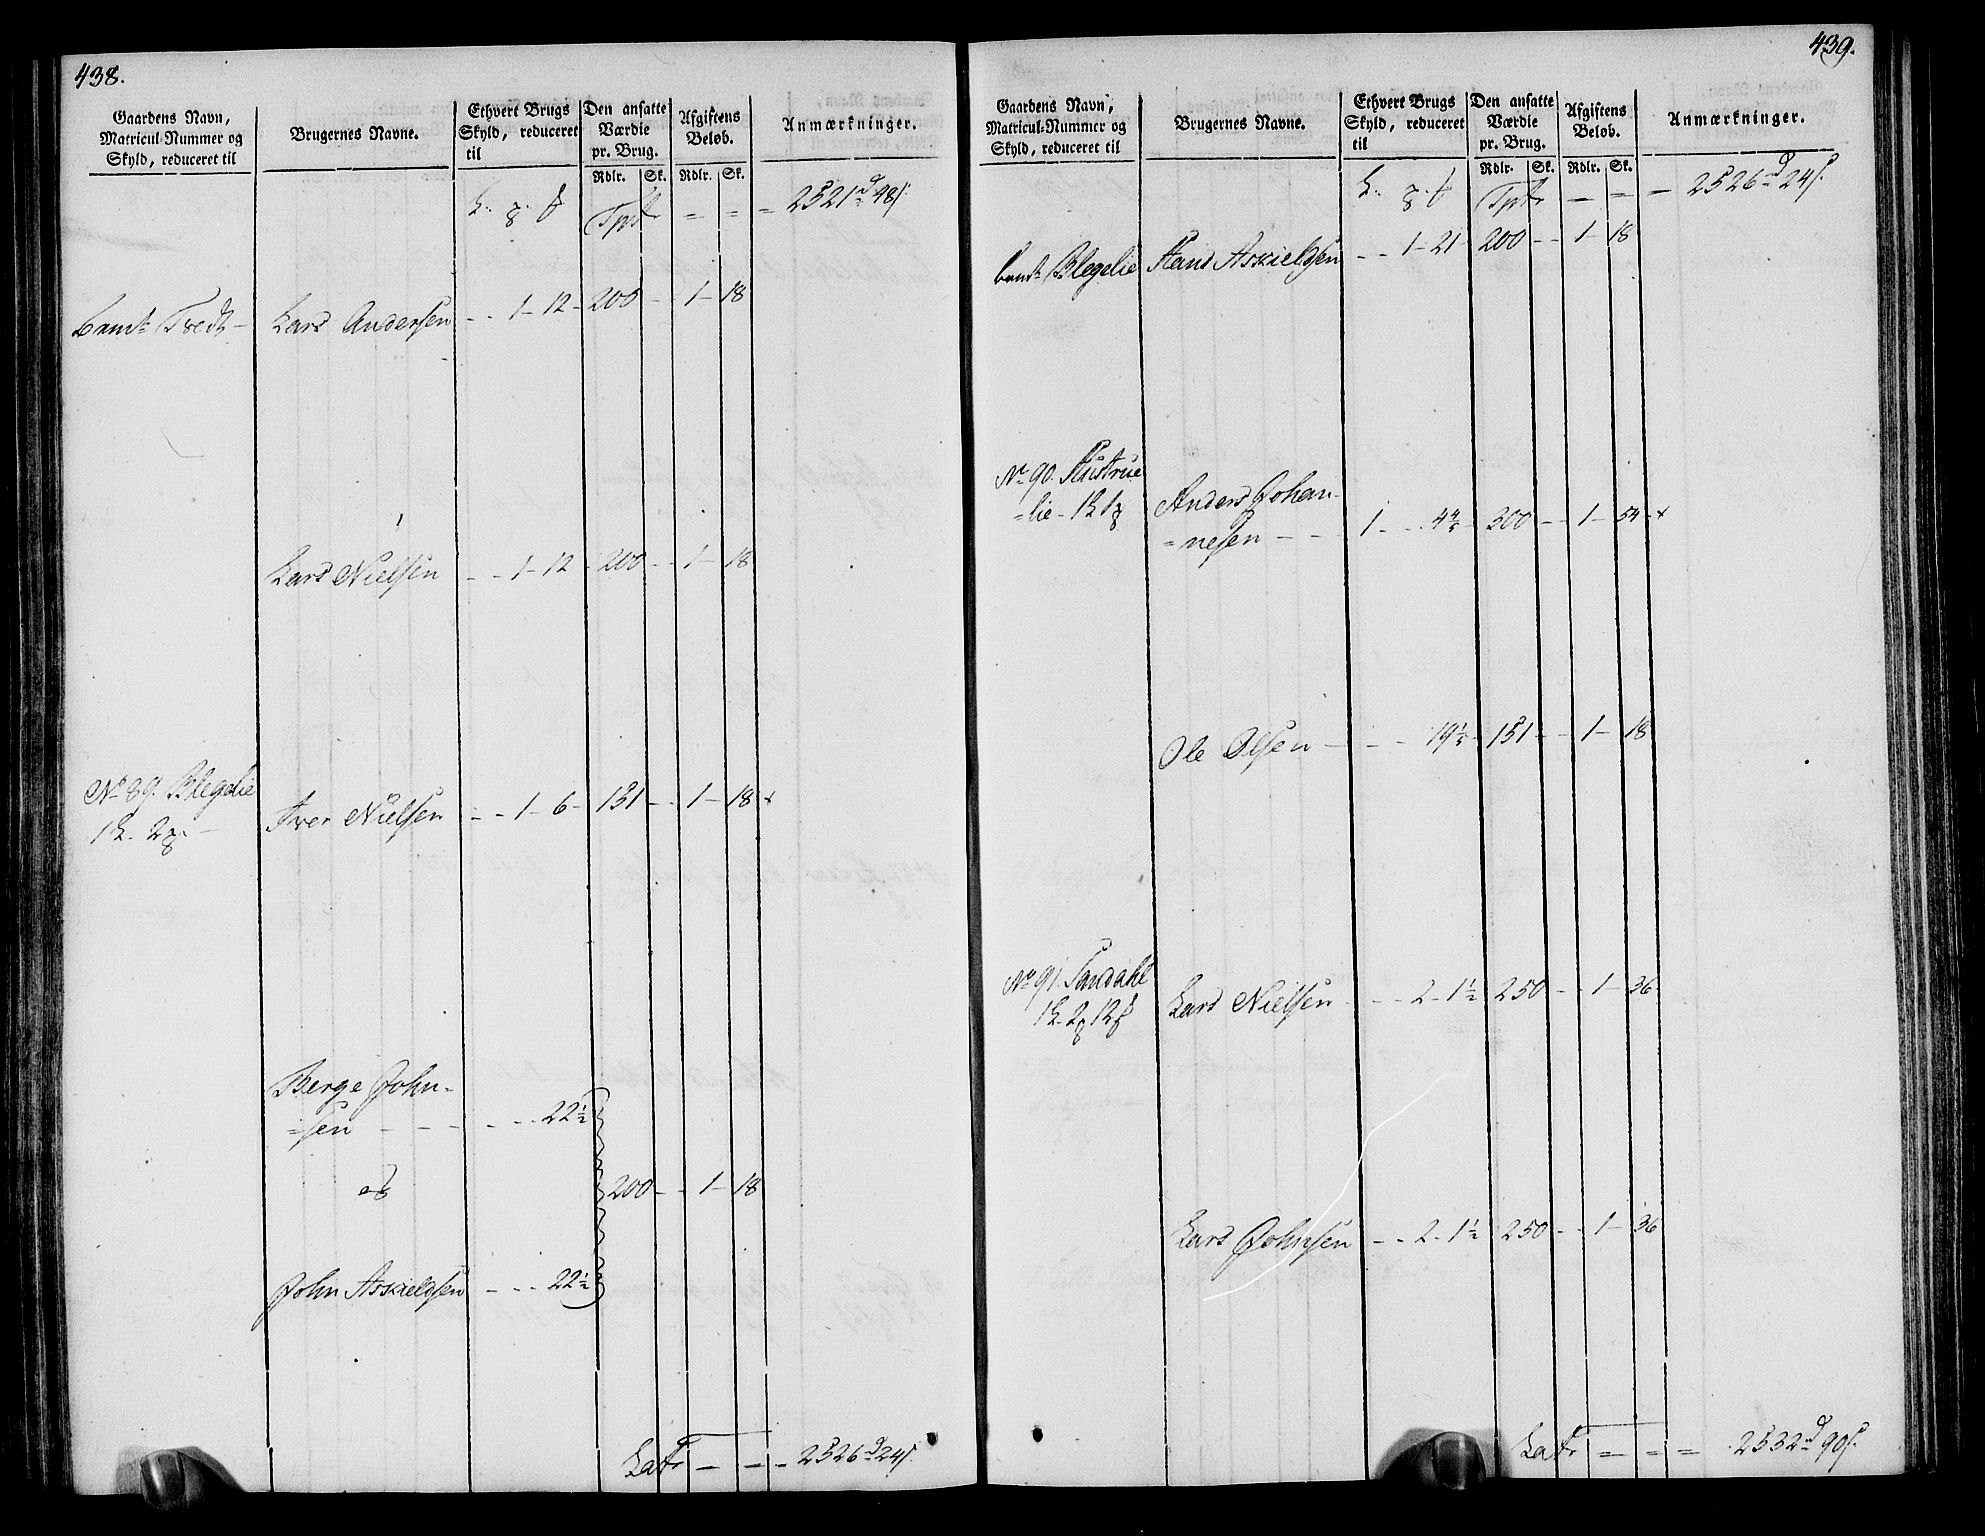 438.
Gaardens Navn, Matricul-Nummer og Skyld, reduceret til | Brugernes Navne. | Ethvert Brugs Skyld, reduceret til | Den ansatte Værdie pr. Brug. | Afgiftens Beløb. | Anmærkninger.
Rdlr. Sk. Rdlr. Sk.
Tpt = = = 2521 48
Tvedt - Lars Andersen - - 1 - 12 - 200 - - 1 - 18
Lars Nielsen - - 1 - 12 - 200 - - 1 - 18
No 89. Blegelie Iver Nielsen - - 1 - 6 - 151 - - 1 - 18 x
Berge John-
=sen - - - - - - 22 1/2
200 - - 1 - 18
John Askieldsen - - - 22 1/2
Latr - - - 2526 24
439.
Gaardens Navn, Matricul-Nummer og Skyld, reduceret til | Brugernes Navne. | Ethvert Brugs Skyld, reduceret til | Den ansatte Værdie pr. Brug. | Afgiftens Beløb. | Anmærkninger.
Rdlr. Sk. Rdlr. Sk.
Tptr - = - 2526 24
Blegelie Hans Askieldsen - - 1 - 21 - 200 - - 1 - 18
No 90. Hustrue
=lie - Anders Johan-
=nesen - - - 1 - - 4 4/5 - 300 - - 1 - 54 - x
Ole Olsen - - - 19 1/5 - 151 - - 1 - 18
No 91. Sandahl Lars Nielsen - - 2 - 1 1/2 250 - - 1 - 36
Lars Johnsen - - 2 - 1 1/2 250 - - 1 - 36
Latr = = = 2532 90